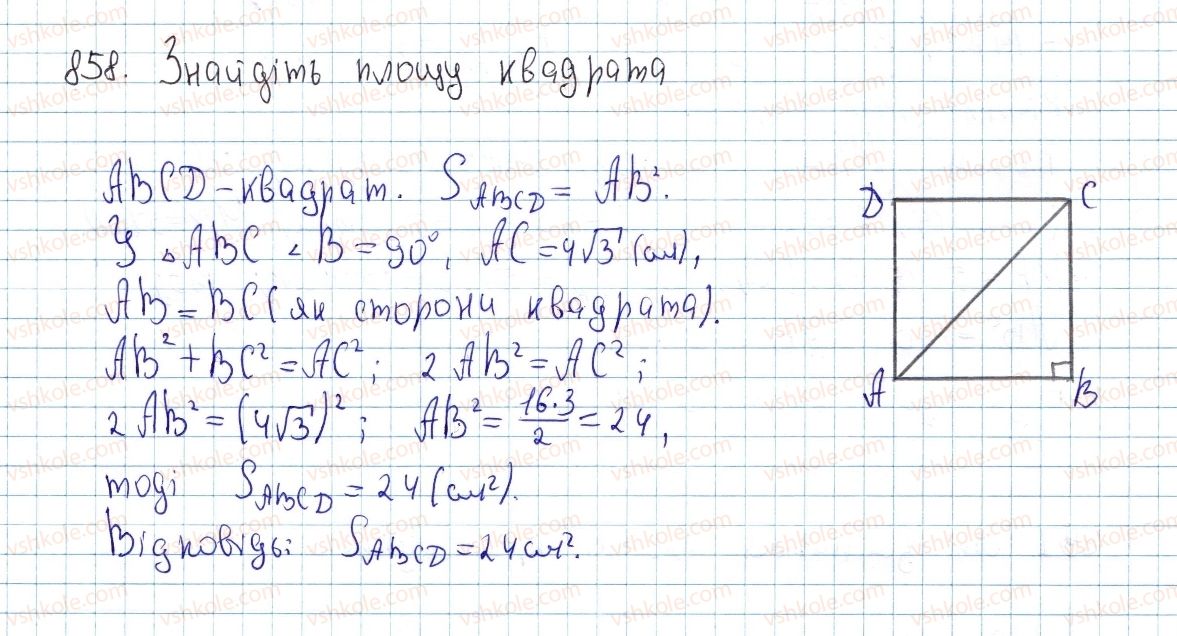 858. Знайдіть площу квадрата
ABCD - квадрат. S_ABCD = AB².
У △ABC ∠B = 90°, AC = 4√3 (см),
AB = BC (як сторони квадрата).
AB² + BC² = AC²; 2 AB² = AC²;
2 AB² = (4√3)²; AB² = 16·3/2 = 24,
тоді S_ABCD = 24 (см²).
Відповідь: S_ABCD = 24 см².
D C
A B
vshkole.com